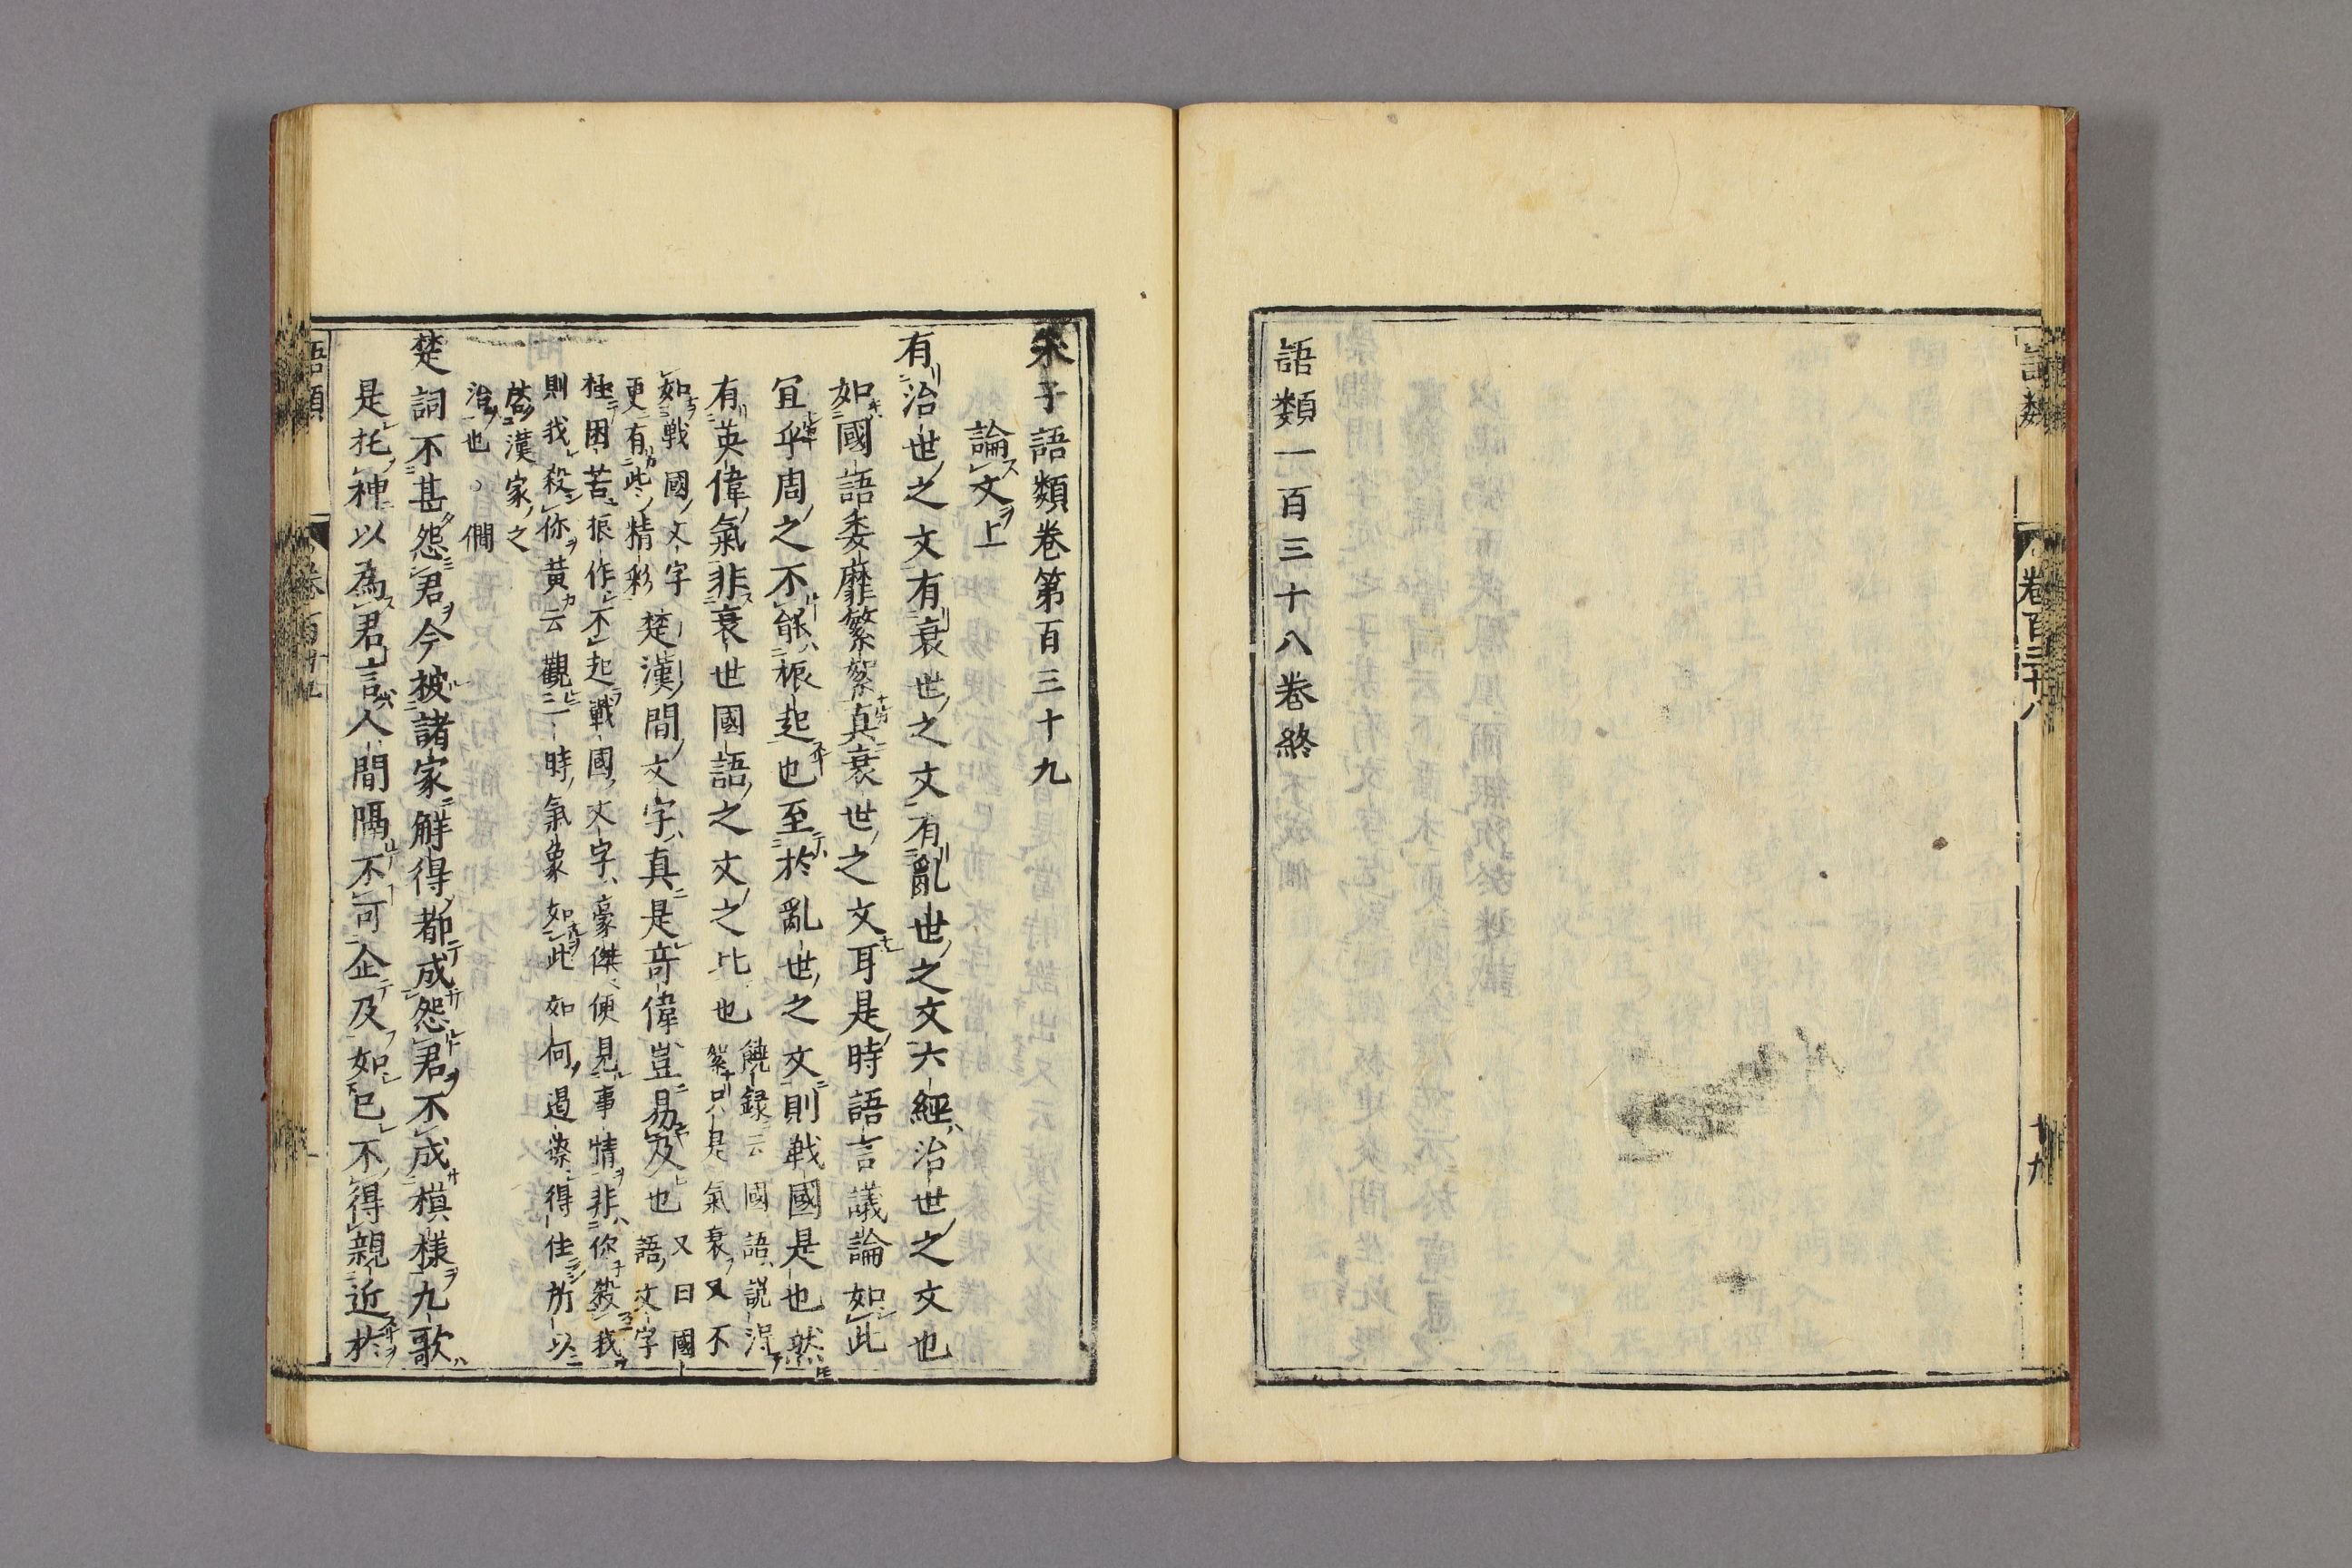 語類一百三十八卷終
語類
卷百三十八
十九
朱子語類卷第百三十九
論文上
有治世之文有衰世之文有亂世之文六經治世之文也
如國語委靡繁絮真衰世之文耳是時語言議論如此
宜乎周之不能振起也至於亂世之文則戰國是也然
有英偉氣非衰世國語之文之比也
饒録云國語說得
絮只是氣衰又不
如戰國文字
更有些精彩
楚漢間文字真是奇偉豈易及也
又曰國
語文字
極困苦振作不起戰國文字豪傑便見事情非你殺我
則我殺你黃云觀一時氣象如此如何遏㯲得住所以
啓漢家之
治也
僩
楚詞不甚怨君今被諸家解得都成怨君不成模樣九歌
是托神以為君言人間隔不可企及如己不得親近於
語類
卷百卅九